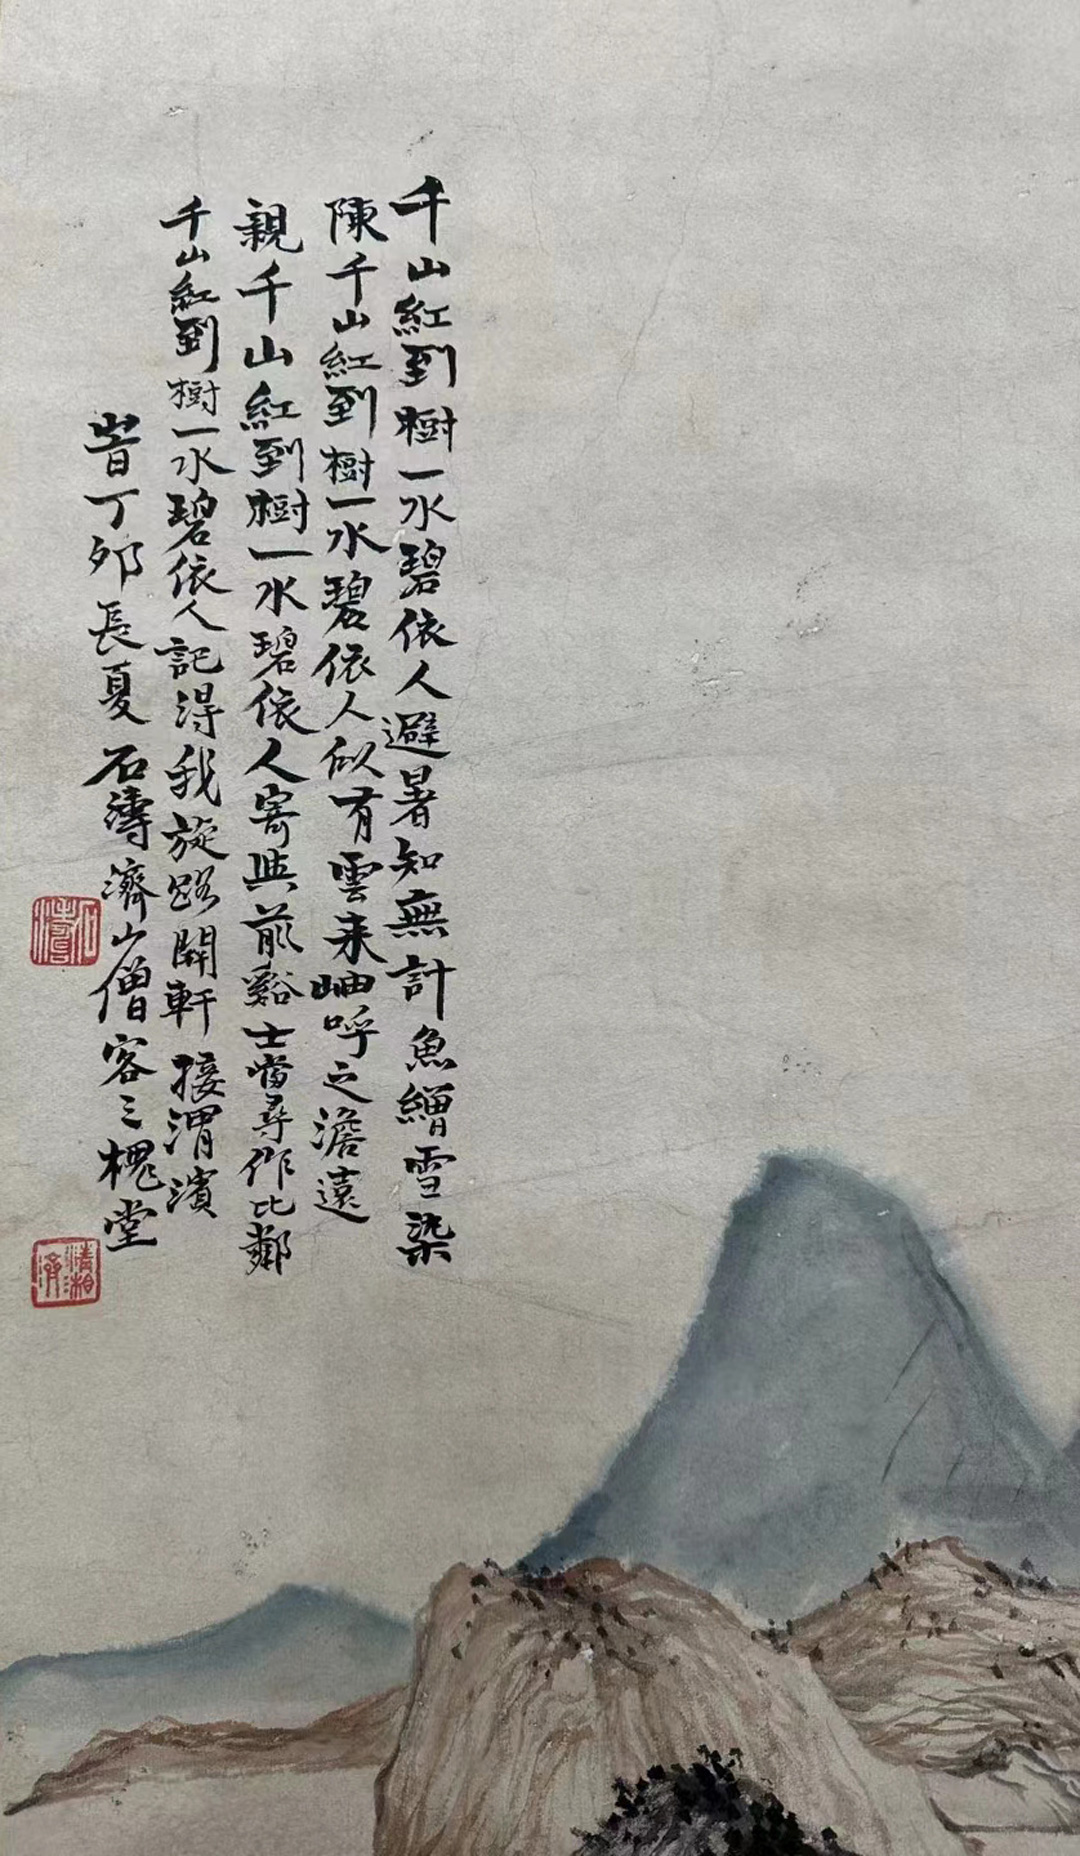 千山紅到樹一水碧依人避暑知無計魚繒雪染
陳千山紅到樹一水碧依人似有雲来岫呼之澹遠
親千山紅到樹一水碧依人寄與前谿士當尋作比鄰
千山紅到樹一水碧依人記得我旋路開軒接渭濱
旹丁夘長夏石濤濟山僧客三槐堂
石濤
清湘石濤